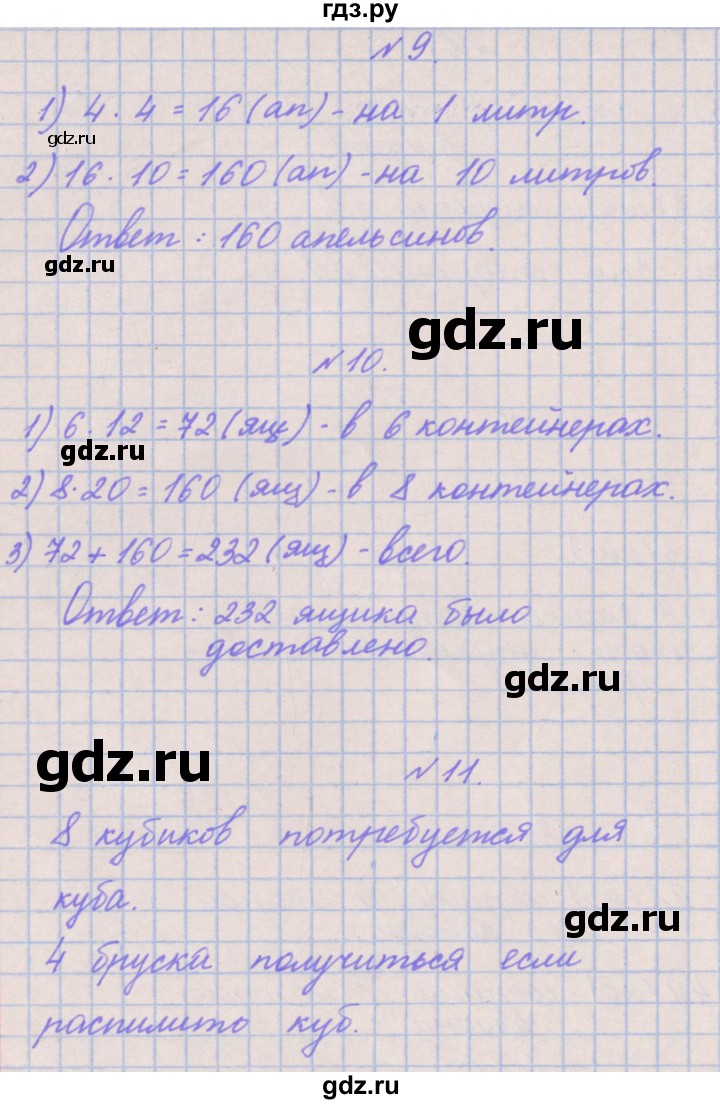 гдз.ру
№ 9.
1) 4 · 4 = 16 (ап) - на 1 литр.
gdz.ru
2) 16 · 10 = 160 (ап) - на 10 литров.
Ответ : 160 апельсинов.
gdz.ru
gdz.ru
№ 10.
1) 6 · 12 = 72 (ящ) - в 6 контейнерах.
gdz.ru
2) 8 · 20 = 160 (ящ) - в 8 контейнерах.
3) 72 + 160 = 232 (ящ) - всего.
Ответ : 232 ящика было
доставлено.
gdz.ru
gdz.ru
№ 11.
8 кубиков потребуется для
куба.
gdz.ru
4 бруска получиться если
распилить куб.
gdz.ru